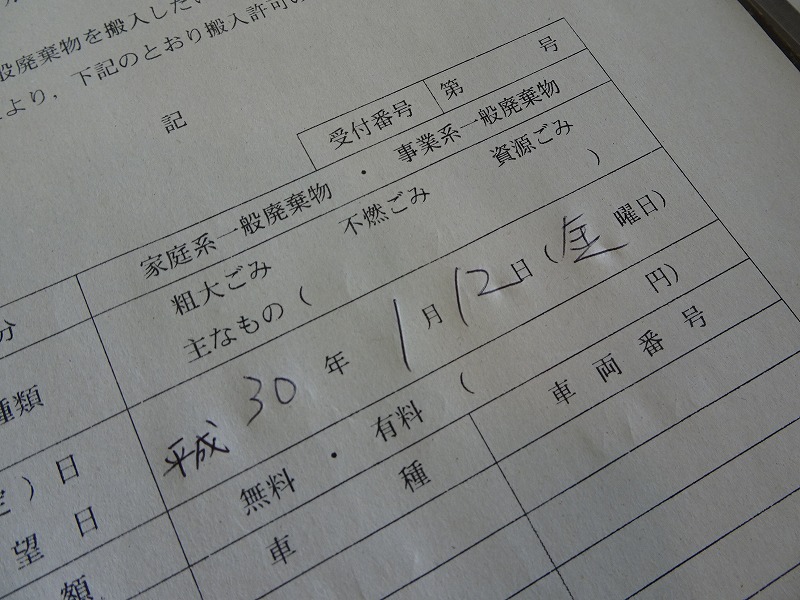 般廃棄物を搬入したい
より，下記のとおり搬入許可の
記
受付番号 第 号
分 家庭系一般廃棄物 ・ 事業系一般廃棄物
種類 粗大ごみ 不燃ごみ 資源ごみ
主なもの（ ）
定）日
望 日 平成 30 年 1 月 12 日（金 曜日）
額 無料 ・ 有料 （ 円）
車 種 車 両 番 号